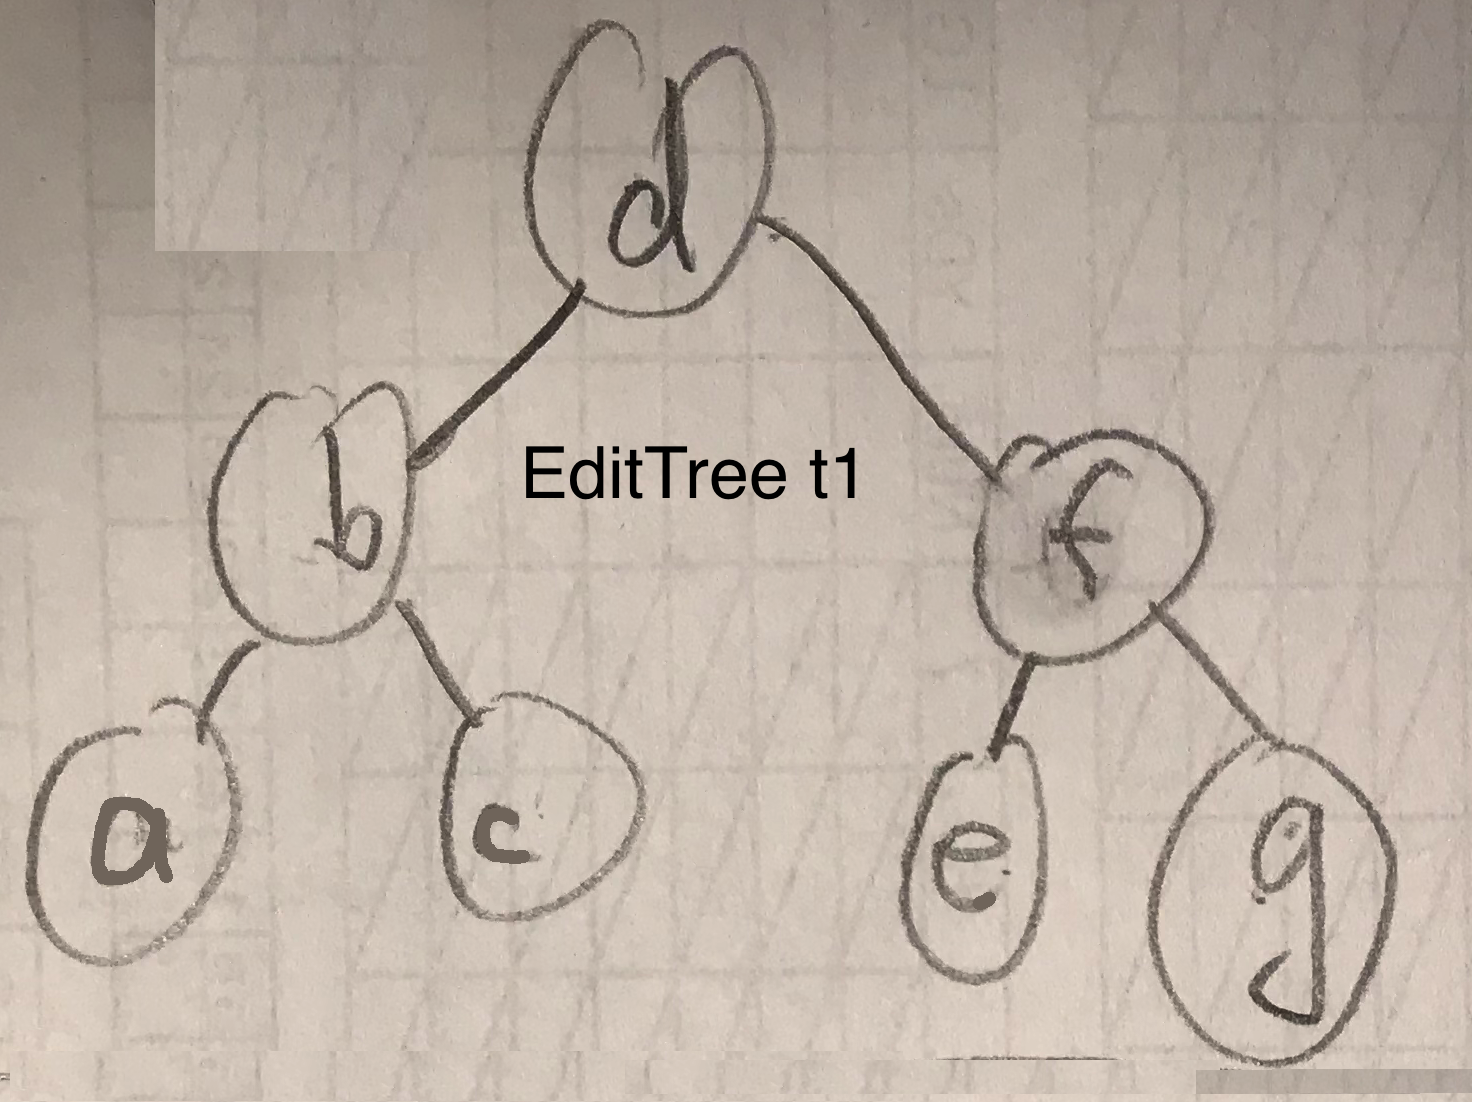 d
b
EditTree t1
f
a
c
e
g